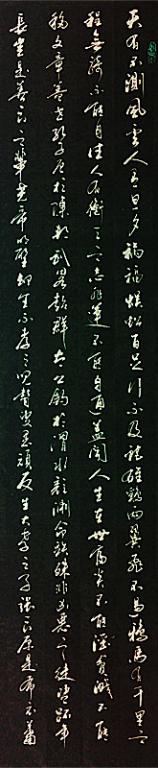 天有不測風雲人有旦夕禍福蜈蚣百足行不及蛇雄雞兩翼飛不過鴉馬有千里之
程無騎不能自往人有衝天之志非運不能自通蓋聞人生在世富貴不能淫貧賤不能
移文章蓋世孔子厄於陳邦武略超群太公釣於渭水顏淵命短殊非凶惡之徒盜跖年
長豈是善良之輩堯帝明聖卻生不孝之兒瞽叟愚頑反生大孝之子張良原是布衣蕭